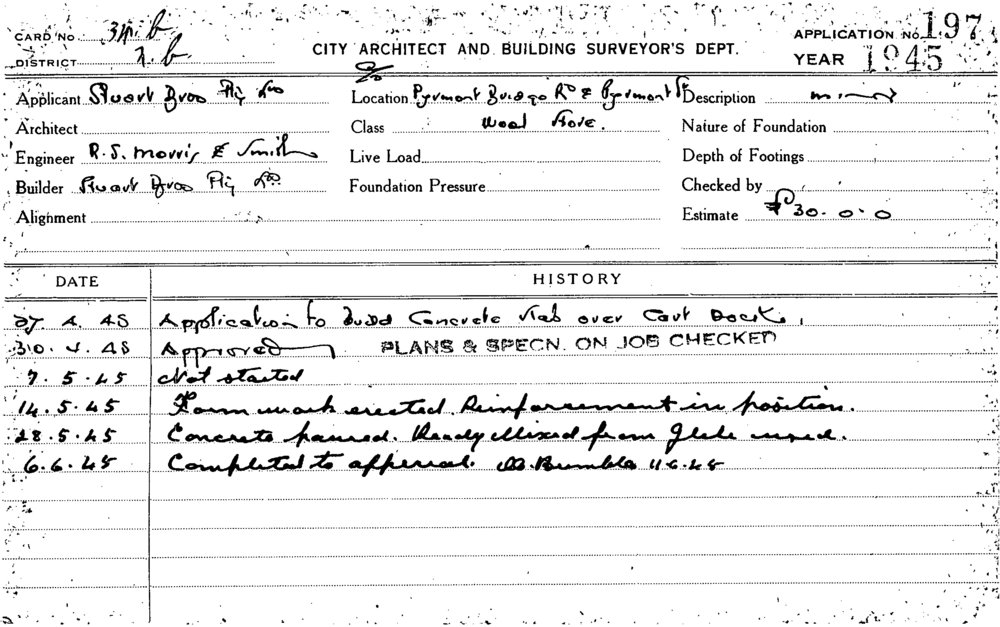 CARD No 34.b
DISTRICT 7.b
CITY ARCHITECT AND BUILDING SURVEYOR'S DEPT.
APPLICATION No. 197
YEAR 1945
Applicant Stuart Bros Pty Ltd
Location Pyrmont Bridge Rd & Pyrmont St
Description minor
Architect
Class Wool Store.
Nature of Foundation
Engineer R.S. Morris & Smith
Live Load
Depth of Footings
Builder Stuart Bros Pty Ltd
Foundation Pressure
Checked by
Alignment
Estimate £30.0.0
DATE HISTORY
27.4.45 Application to build Concrete slab over Cart Dock.
30.4.45 Approved PLANS & SPECN. ON JOB CHECKED
7.5.45 Not started
14.5.45 Form work erected. Reinforsement in position.
28.5.45 Concrete poured. Ready Mixed from Glebe used.
6.6.45 Completed to approval. 11.6.45